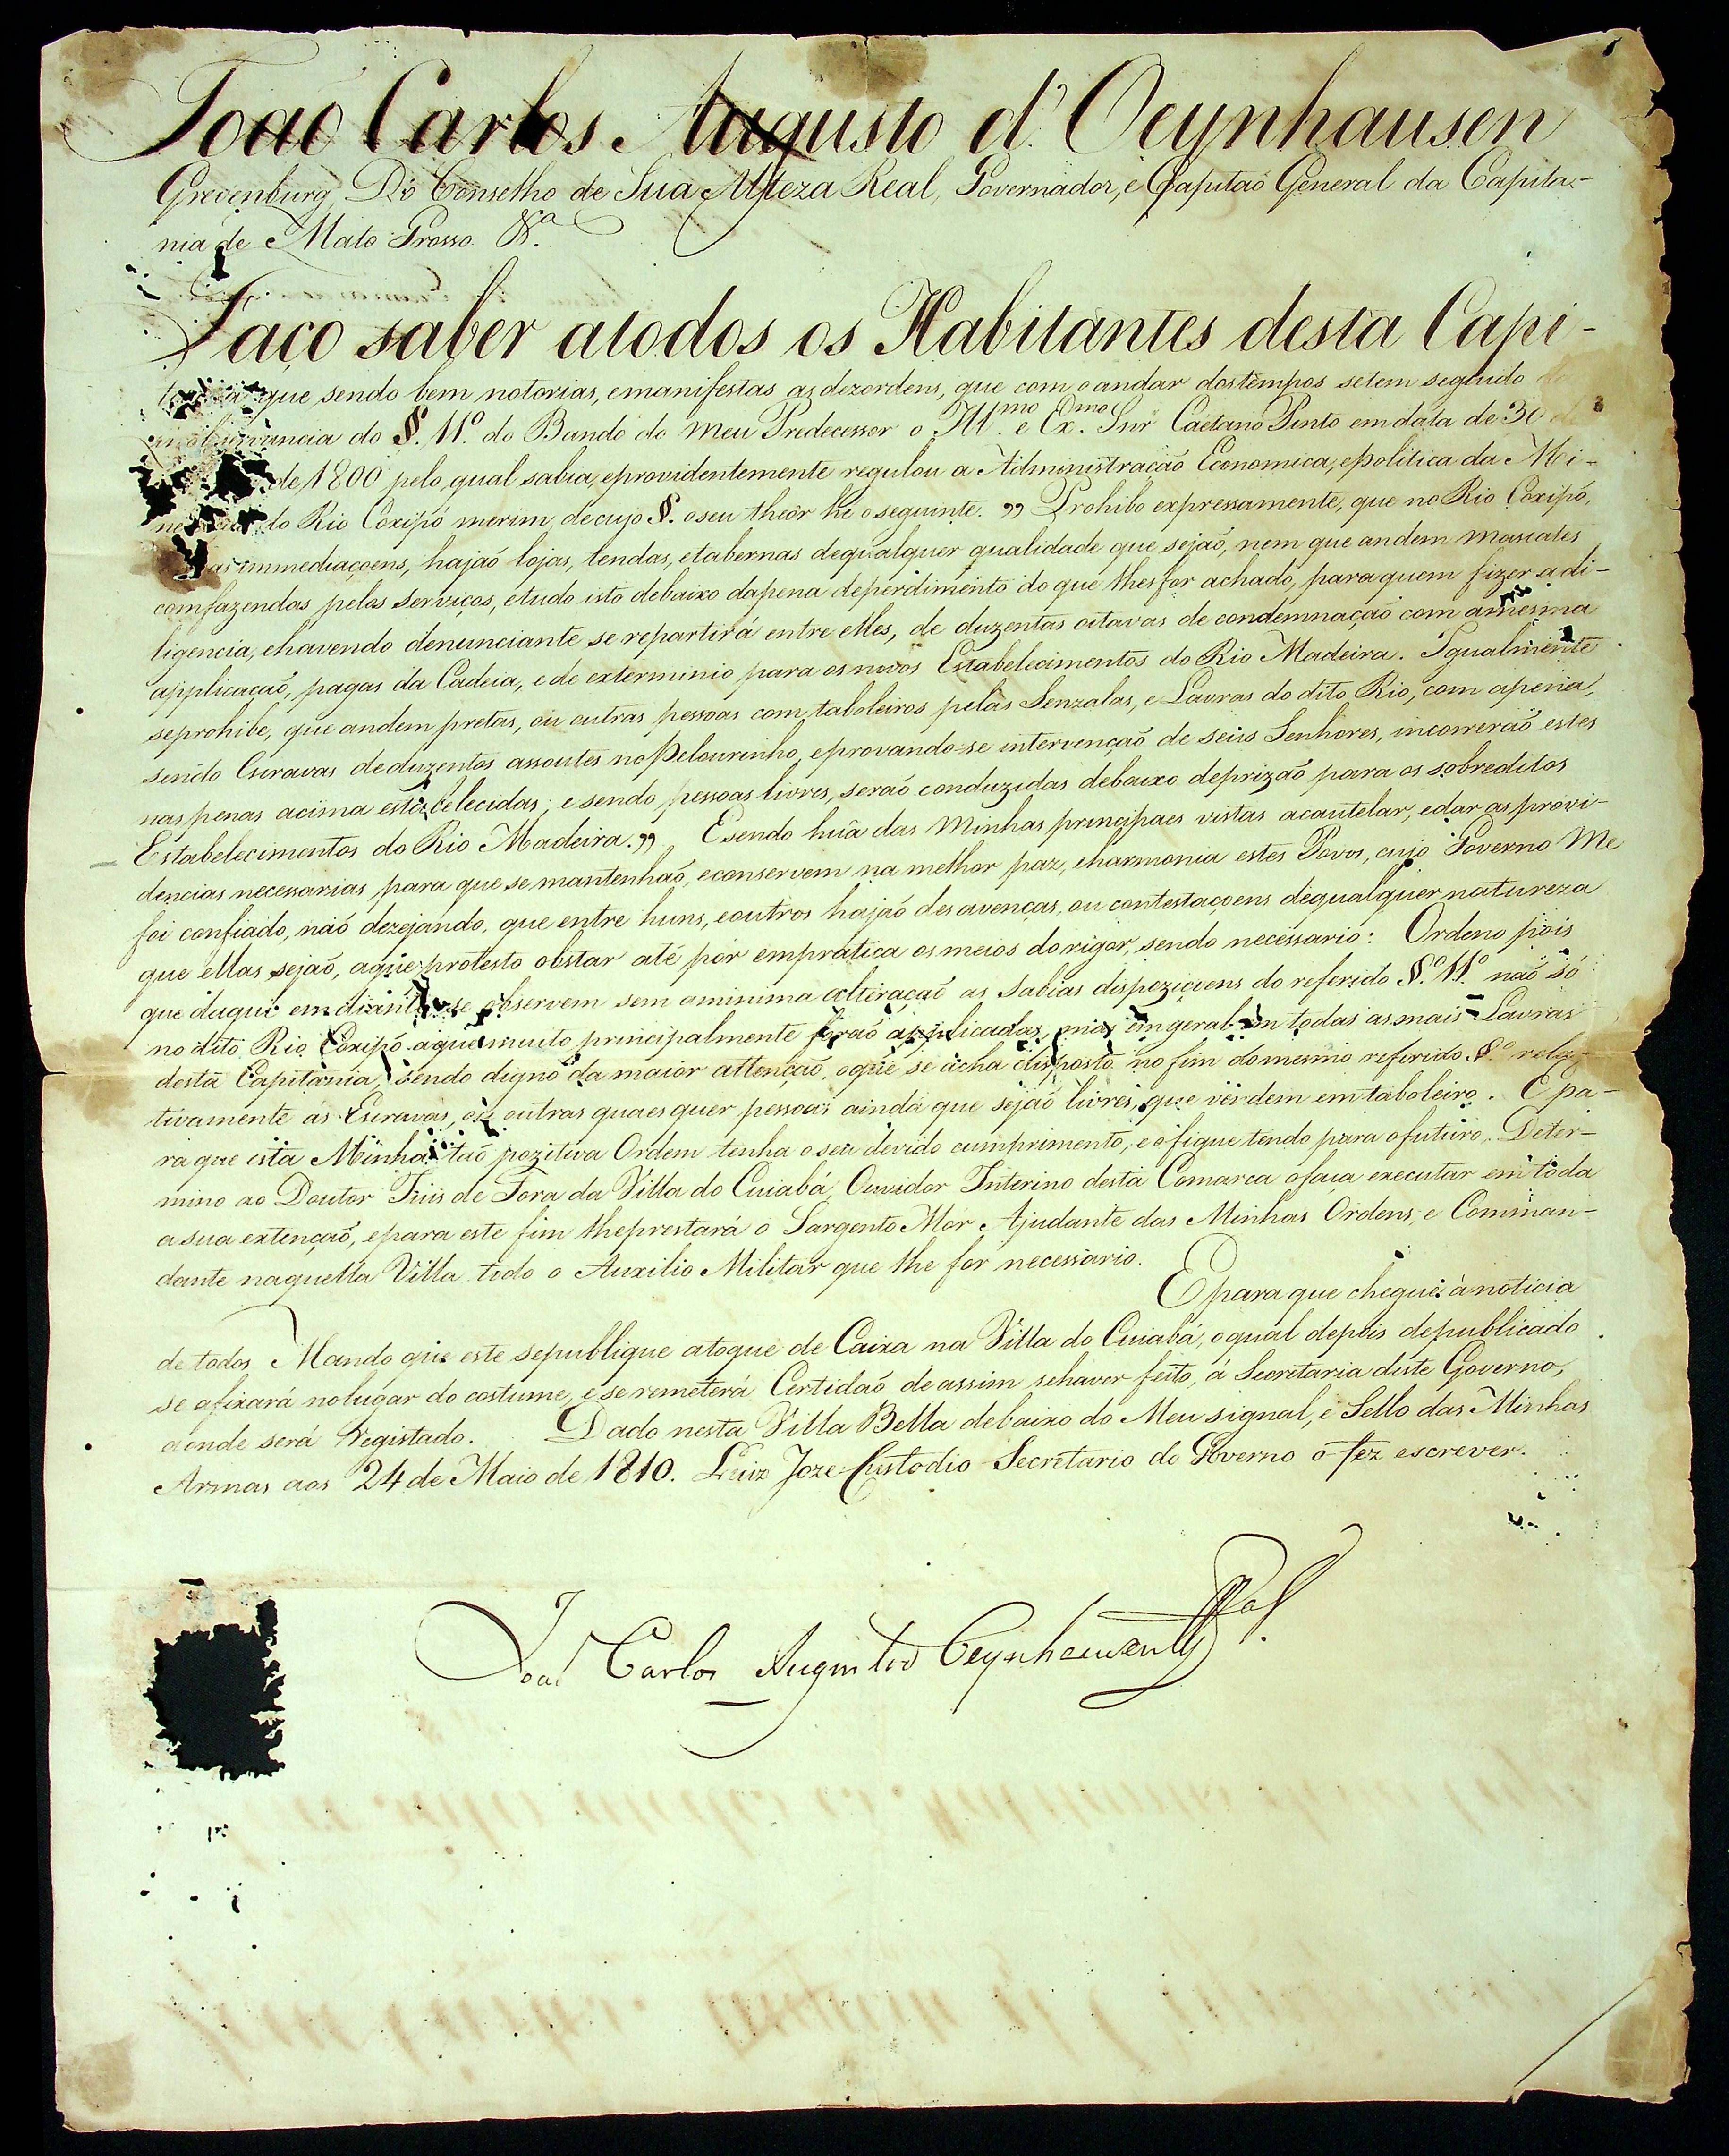 João Carlos Augusto d'Oeynhausen
Grevenburg, Do Conselho de Sua Alteza Real, Governador, e Capitaõ General da Capita-
nia de Mato Grosso &.ª
Faço saber atodos os Habitantes desta Capi-
que sendo bem notorias, emanifestas as dezordens, que com o andar dostempos setem seguido
do §. 11.º do Bando do Meu Predecessor o Ill.mo e Ex.mo Snr Caetano Pinto emdata de 30
de 1800 pelo qual sabia, eprovidentemente regulou a Administração Economica, epolitica da Mi-
do Rio Coxipó merim, decujo §. oseu theôr he oseguinte. ,, Prohibo expressamente, que no Rio Coxipó,
immediaçoens, hajaõ lojas, tendas, etabernas dequalquer qualidade que sejaõ, nem que andem mascates
comfazendas pelos serviços, etudo isto debaixo dapena deperdimento do que lhesfor achado, para quem fizer adi-
ligencia, ehavendo denunciante se repartirá entre elles, de duzentas oitavas de condemnaçaõ com amesma
applicaçaõ, pagas da Cadeia, ede exterminio para osnovos Estabelecimentos do Rio Madeira. Igualmente
seprohibe, que andem pretas, ou outras pessoas com taboleiros pelas Senzalas, e Lavras do dito Rio, com apena,
sendo Escravas deduzentos assoutes noPelourinho, eprovando-se intervençaõ de seus Senhores, incorreraõ estes
naspenas acima estabelecidas; e sendo pessoas livres, seraõ conduzidas debaixo deprizaõ para os sobreditos
Estabelecimentos do Rio Madeira. ,, Esendo huã das Minhas principaes vistas acautelar, edar as provi-
dencias necessarias para que se mantenhaõ, econservem na melhor paz, eharmonia estes Povos, cujo Governo Me
foi confiado, naõ dezejando, que entre huns, eoutros hajaõ desavenças, ou contestaçoens dequalquer natureza
que ellas sejaõ, aque protesto obstar até pôr empratica os meios dorigor, sendo necessario: Ordeno pois
que daqui emdiante se observem sem aminima alteraçaõ as sabias dispoziçoens do referido §.º 11.º naõ só
nodito Rio Coxipó aque muito principalmente foraõ applicadas, mas emgeral em todas asmais Lavras
desta Capitania, sendo digno da maior attençaõ, oque se acha disposto no fim domesmo referido §.º rela-
tivamente ás Escravas, ou outras quaes quer pessoas ainda que sejaõ livres, que vendem emtaboleiro. E pa-
ra que esta Minha taõ pozitiva Ordem tenha oseu devido cumprimento, e ofique tendo para ofuturo, Deter-
mino ao Doutor Juis de Fora da Villa do Cuiabá, Ouvidor Interino desta Comarca ofaça executar em toda
asua extençaõ, epara este fim lheprestará o Sargento Mór Ajudante das Minhas Ordens, e Comman-
dante naquella Villa todo o Auxilio Militar que lhe for necessario.
Epara que chegue ànoticia
detodos Mando que este sepublique atoque de Caixa na Villa do Cuiabá, oqual depois depublicado
se afixará nolugar do costume, e se remeterá Certidaõ de assim sehaver feito, á Secretaria deste Governo,
aonde será Registado. Dado nesta Villa Bella debaixo do Meu signal, e Sello das Minhas
Armas aos 24 de Maio de 1810. Luiz Joze Custodio Secretario do Governo o fez escrever.
Joaõ Carlos Augusto Oeynhausen